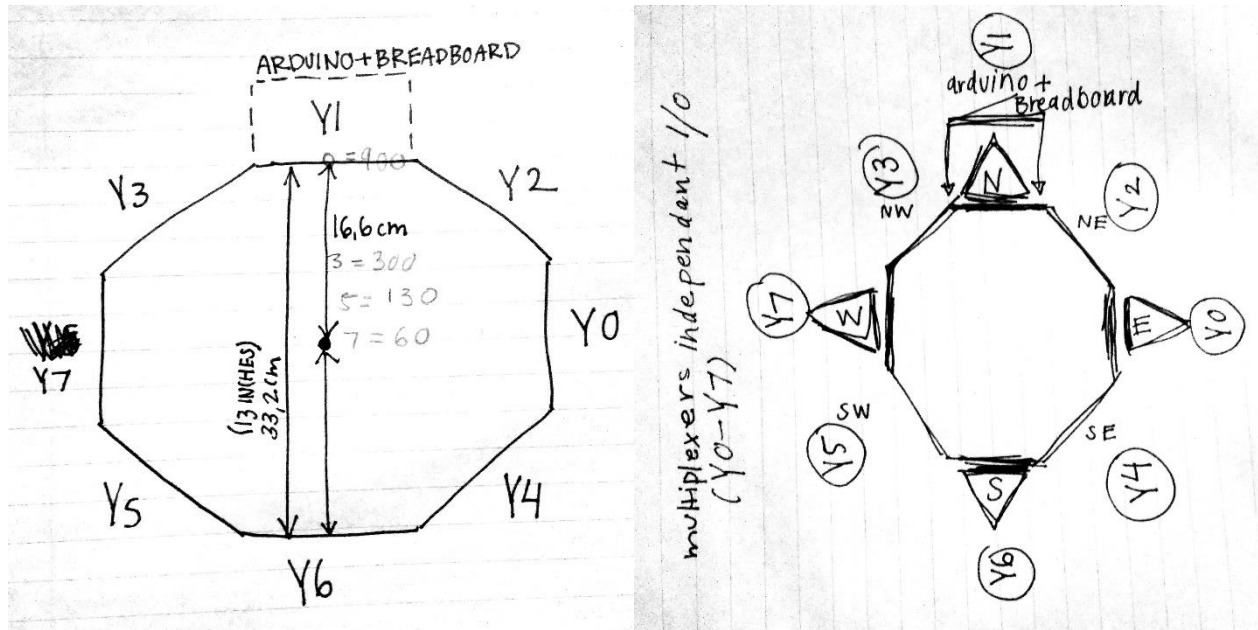 ARDUINO+BREADBOARD
Y1
0=900
Y3
Y2
16,6cm
3=300
5=130
7=60
Y0
Y7
(13 INCHES)
33,2cm
Y5
Y4
Y6
multiplexers independant I/O
(Y0-Y7)
Y1
arduino +
Breadboard
N
Y3
NW
Y2
NE
Y7
W
E
Y0
SW
Y5
SE
Y4
S
Y6